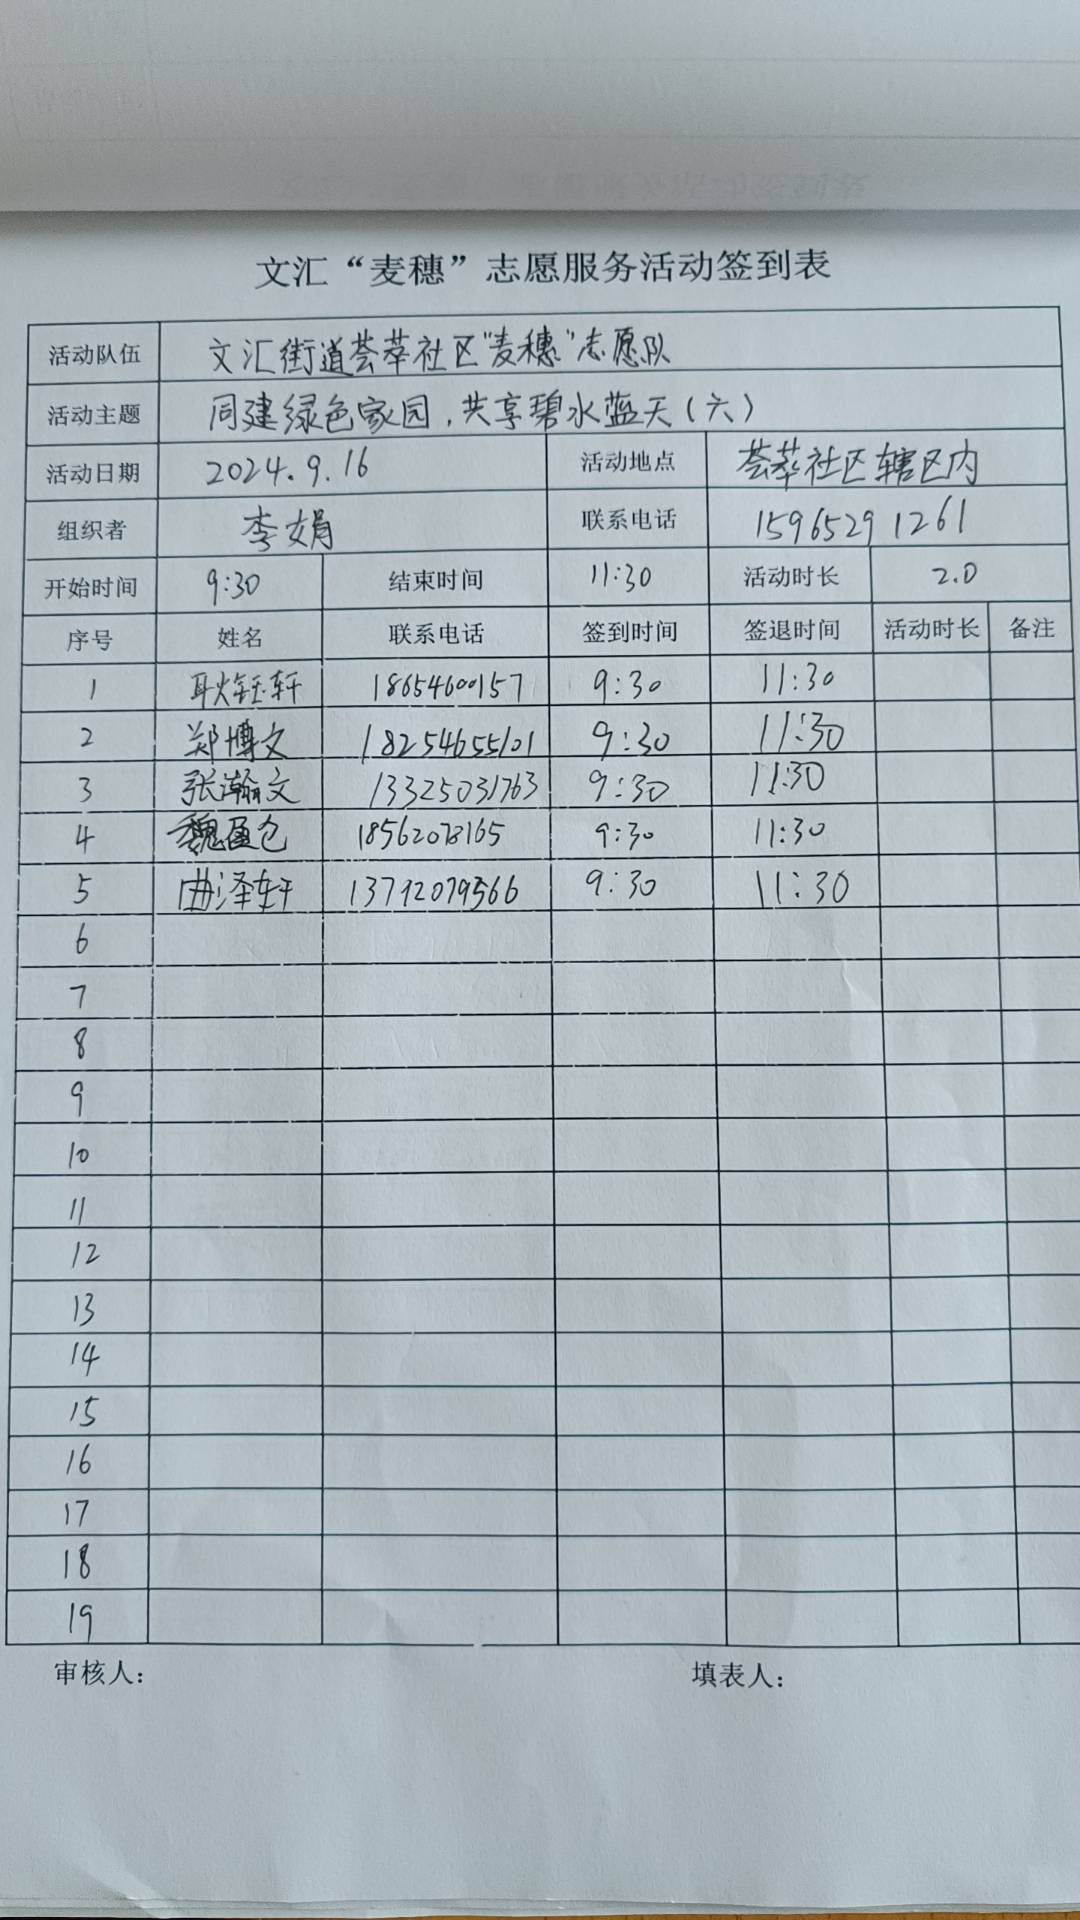 文汇“麦穗”志愿服务活动签到表
活动队伍 文汇街道荟萃社区“麦穗”志愿队
活动主题 同建绿色家园,共享碧水蓝天(六)
活动日期 2024.9.16 活动地点 荟萃社区辖区内
组织者 李娟 联系电话 15965291261
开始时间 9:30 结束时间 11:30 活动时长 2.0
序号 姓名 联系电话 签到时间 签退时间 活动时长 备注
1 耿钰轩 18654600157 9:30 11:30
2 郑博文 18254655101 9:30 11:30
3 张瀚文 13325031763 9:30 11:30
4 魏 18562078165 9:30 11:30
5 曲泽轩 13792079566 9:30 11:30
6
7
8
9
10
11
12
13
14
15
16
17
18
19
审核人: 填表人: